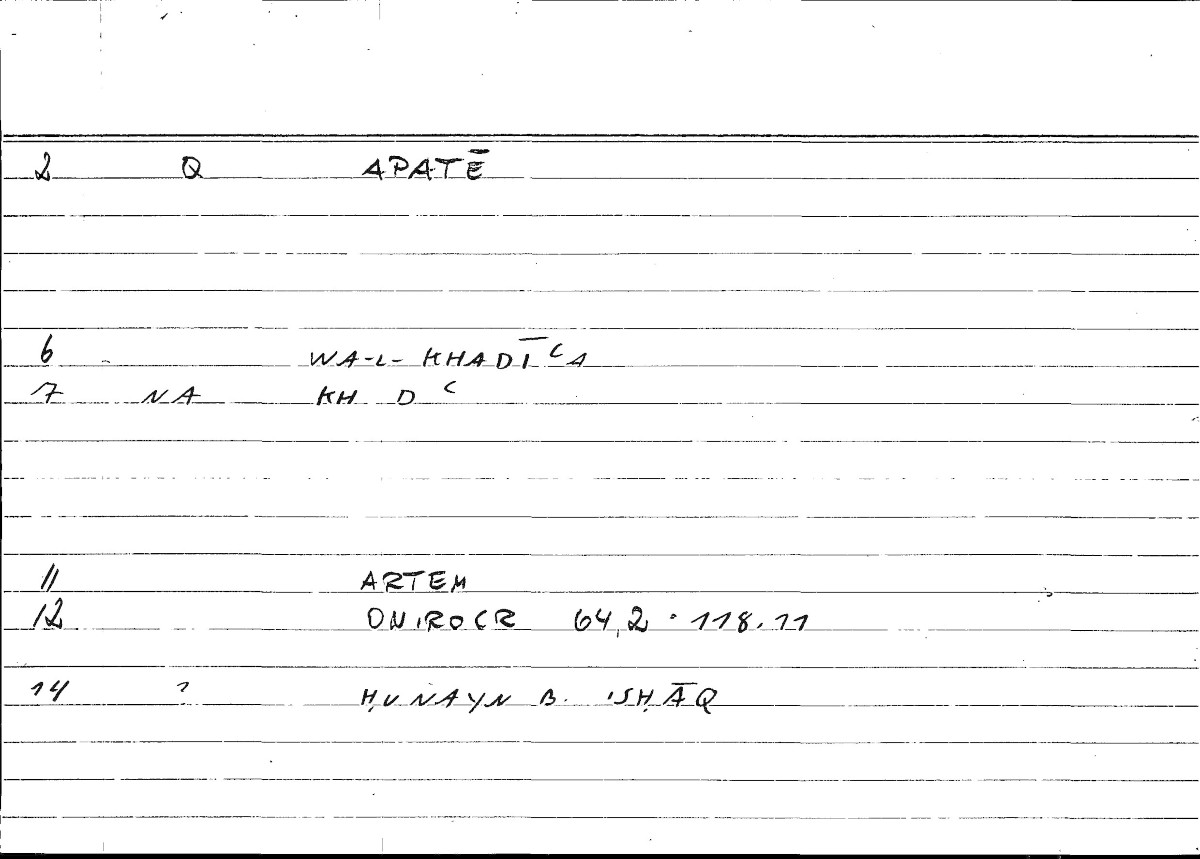 2 Q APATĒ
6 WA-L-KHADĪʿA
7 NA KH D ʿ
11 ARTEM
12 ONIROCR 64,2 · 118.11
14 ? ḤUNAYN B. ISḤĀQ